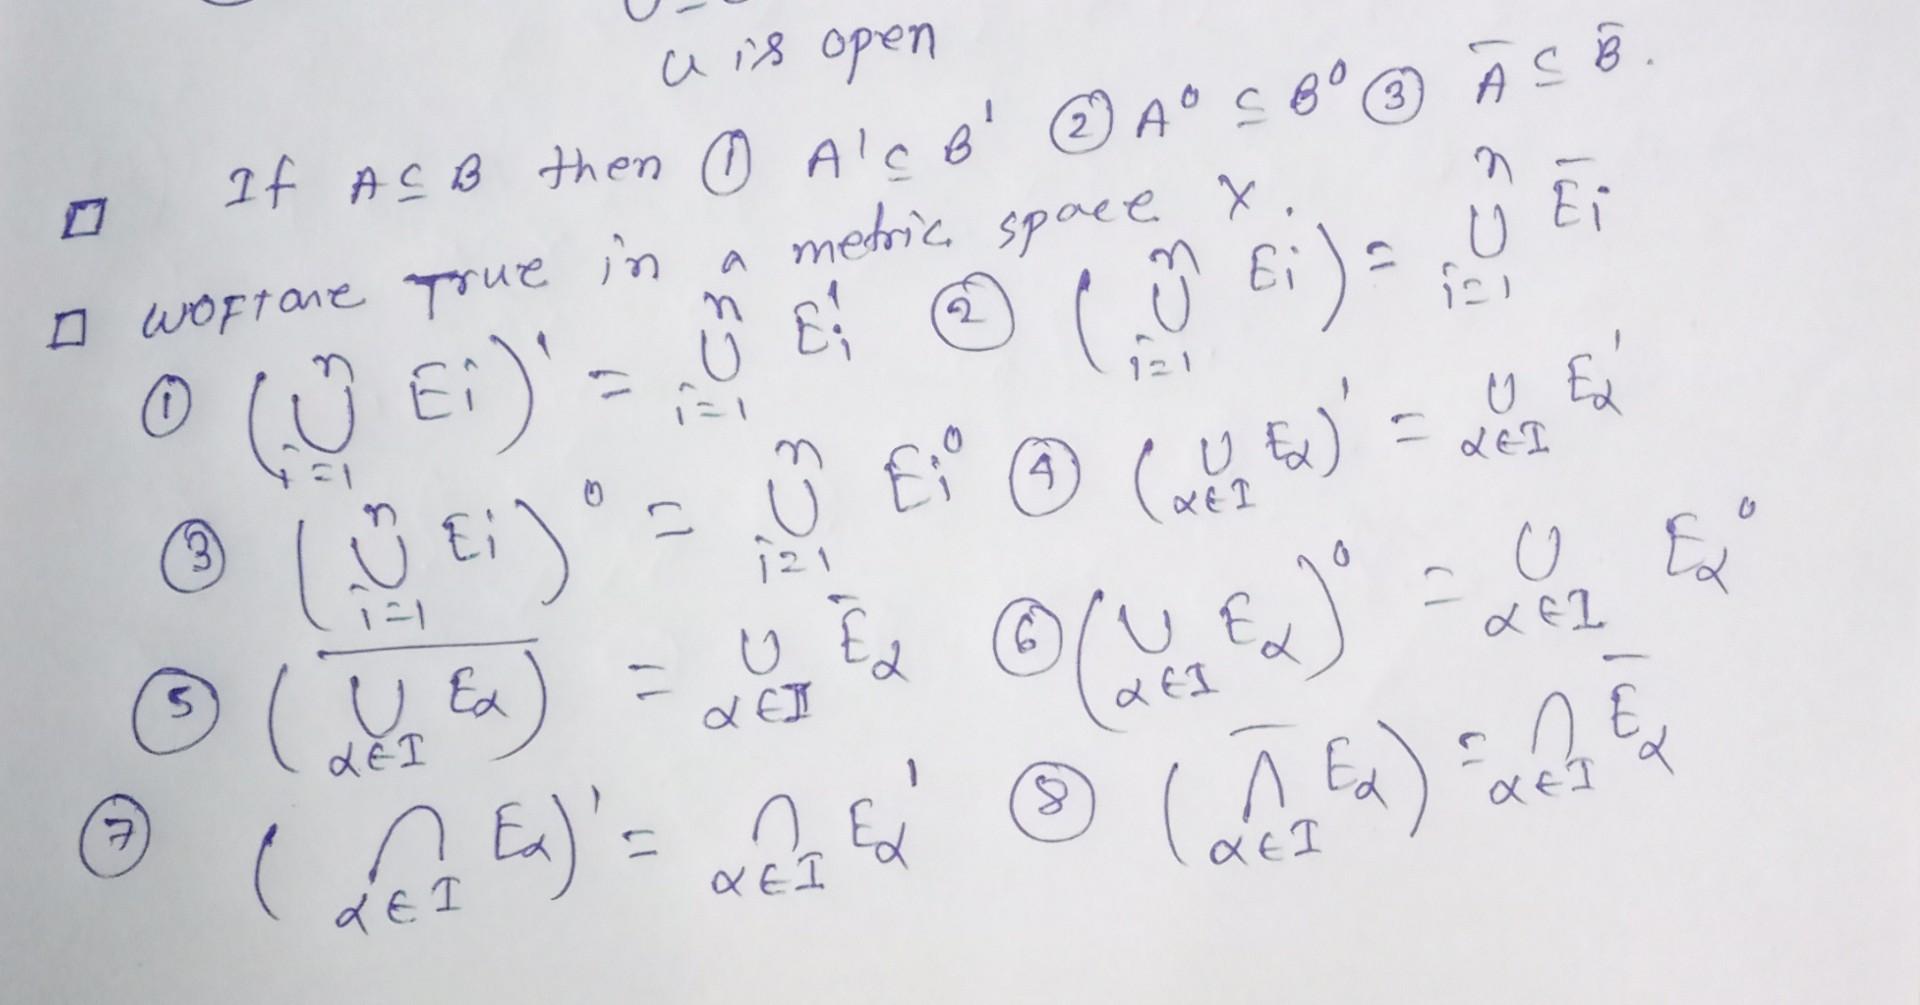 u is open
□ If A ⊆ B then ① A' ⊆ B' ② A⁰ ⊆ B⁰ ③ Ā ⊆ B̄.
□ WOFTare True in a metric space X.
① (⋃ᵢ₌₁ⁿ Ei)' = ⋃ᵢ₌₁ⁿ Ei' ② (⋃ᵢ₌₁ⁿ Ei) = ⋃ᵢ₌₁ⁿ Ēi
③ (⋃ᵢ₌₁ⁿ Ei)⁰ = ⋃ᵢ₌₁ⁿ Ei⁰ ④ (⋃_{α∈I} Eα)' = ⋃_{α∈I} Eα'
⑤ (\overline{⋃_{α∈I} Eα}) = ⋃_{α∈I} Ēα ⑥ (⋃_{α∈I} Eα)⁰ = ⋃_{α∈I} Eα⁰
⑦ (⋂_{α∈I} Eα)' = ⋂_{α∈I} Eα' ⑧ (\overline{⋂_{α∈I}} Eα) = ⋂_{α∈I} Ēα